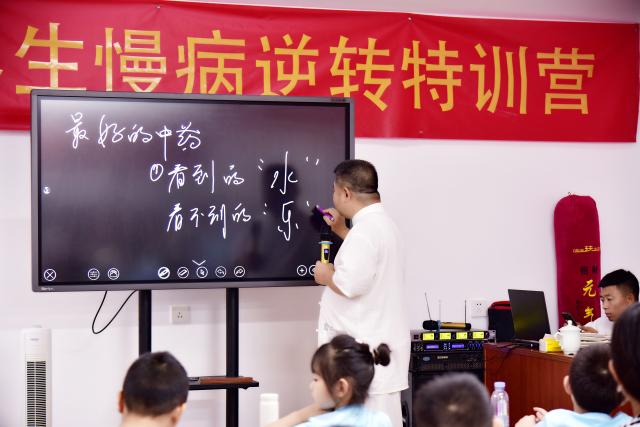 生慢病逆转特训营
最好的中药
①看到的“水”
看不到的“乐”
元气